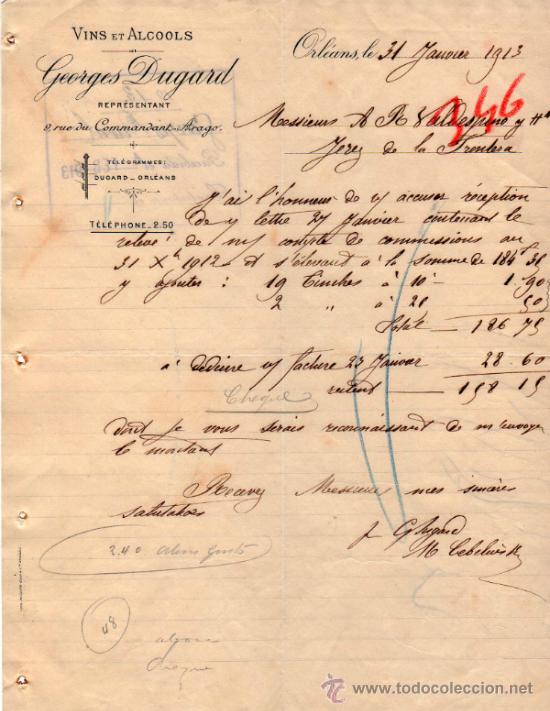 VINS ET ALCOOLS
Georges Dugard
REPRÉSENTANT
9, rue du Commandant Arago.
TÉLÉGRAMMES:
DUGARD _ ORLÉANS
TÉLÉPHONE _ 2.50
Orléans, le 31 Janvier 1913
346
Messieurs A R Valdespino y Hno
Jerez de la Frontera
J'ai l'honneur de vs accuser réception
de vs lettre 27 Janvier contenant le
relevé de mon compte de commissions au
31 Xbre 1912 et s'élevant à la somme de 184f 35
y ajouter : 19 Timbres à 10c 1.90
2 " à 25 50
Total 186 75
à déduire vs facture 23 Janvier 28.60
restent 158 15
Cheque
dont je vous serais reconnaissant de m'envoyer
le montant
Recevez Messieurs mes sincères
salutations
p. G Dugard
2.40
48
cheque
www.todocoleccion.net